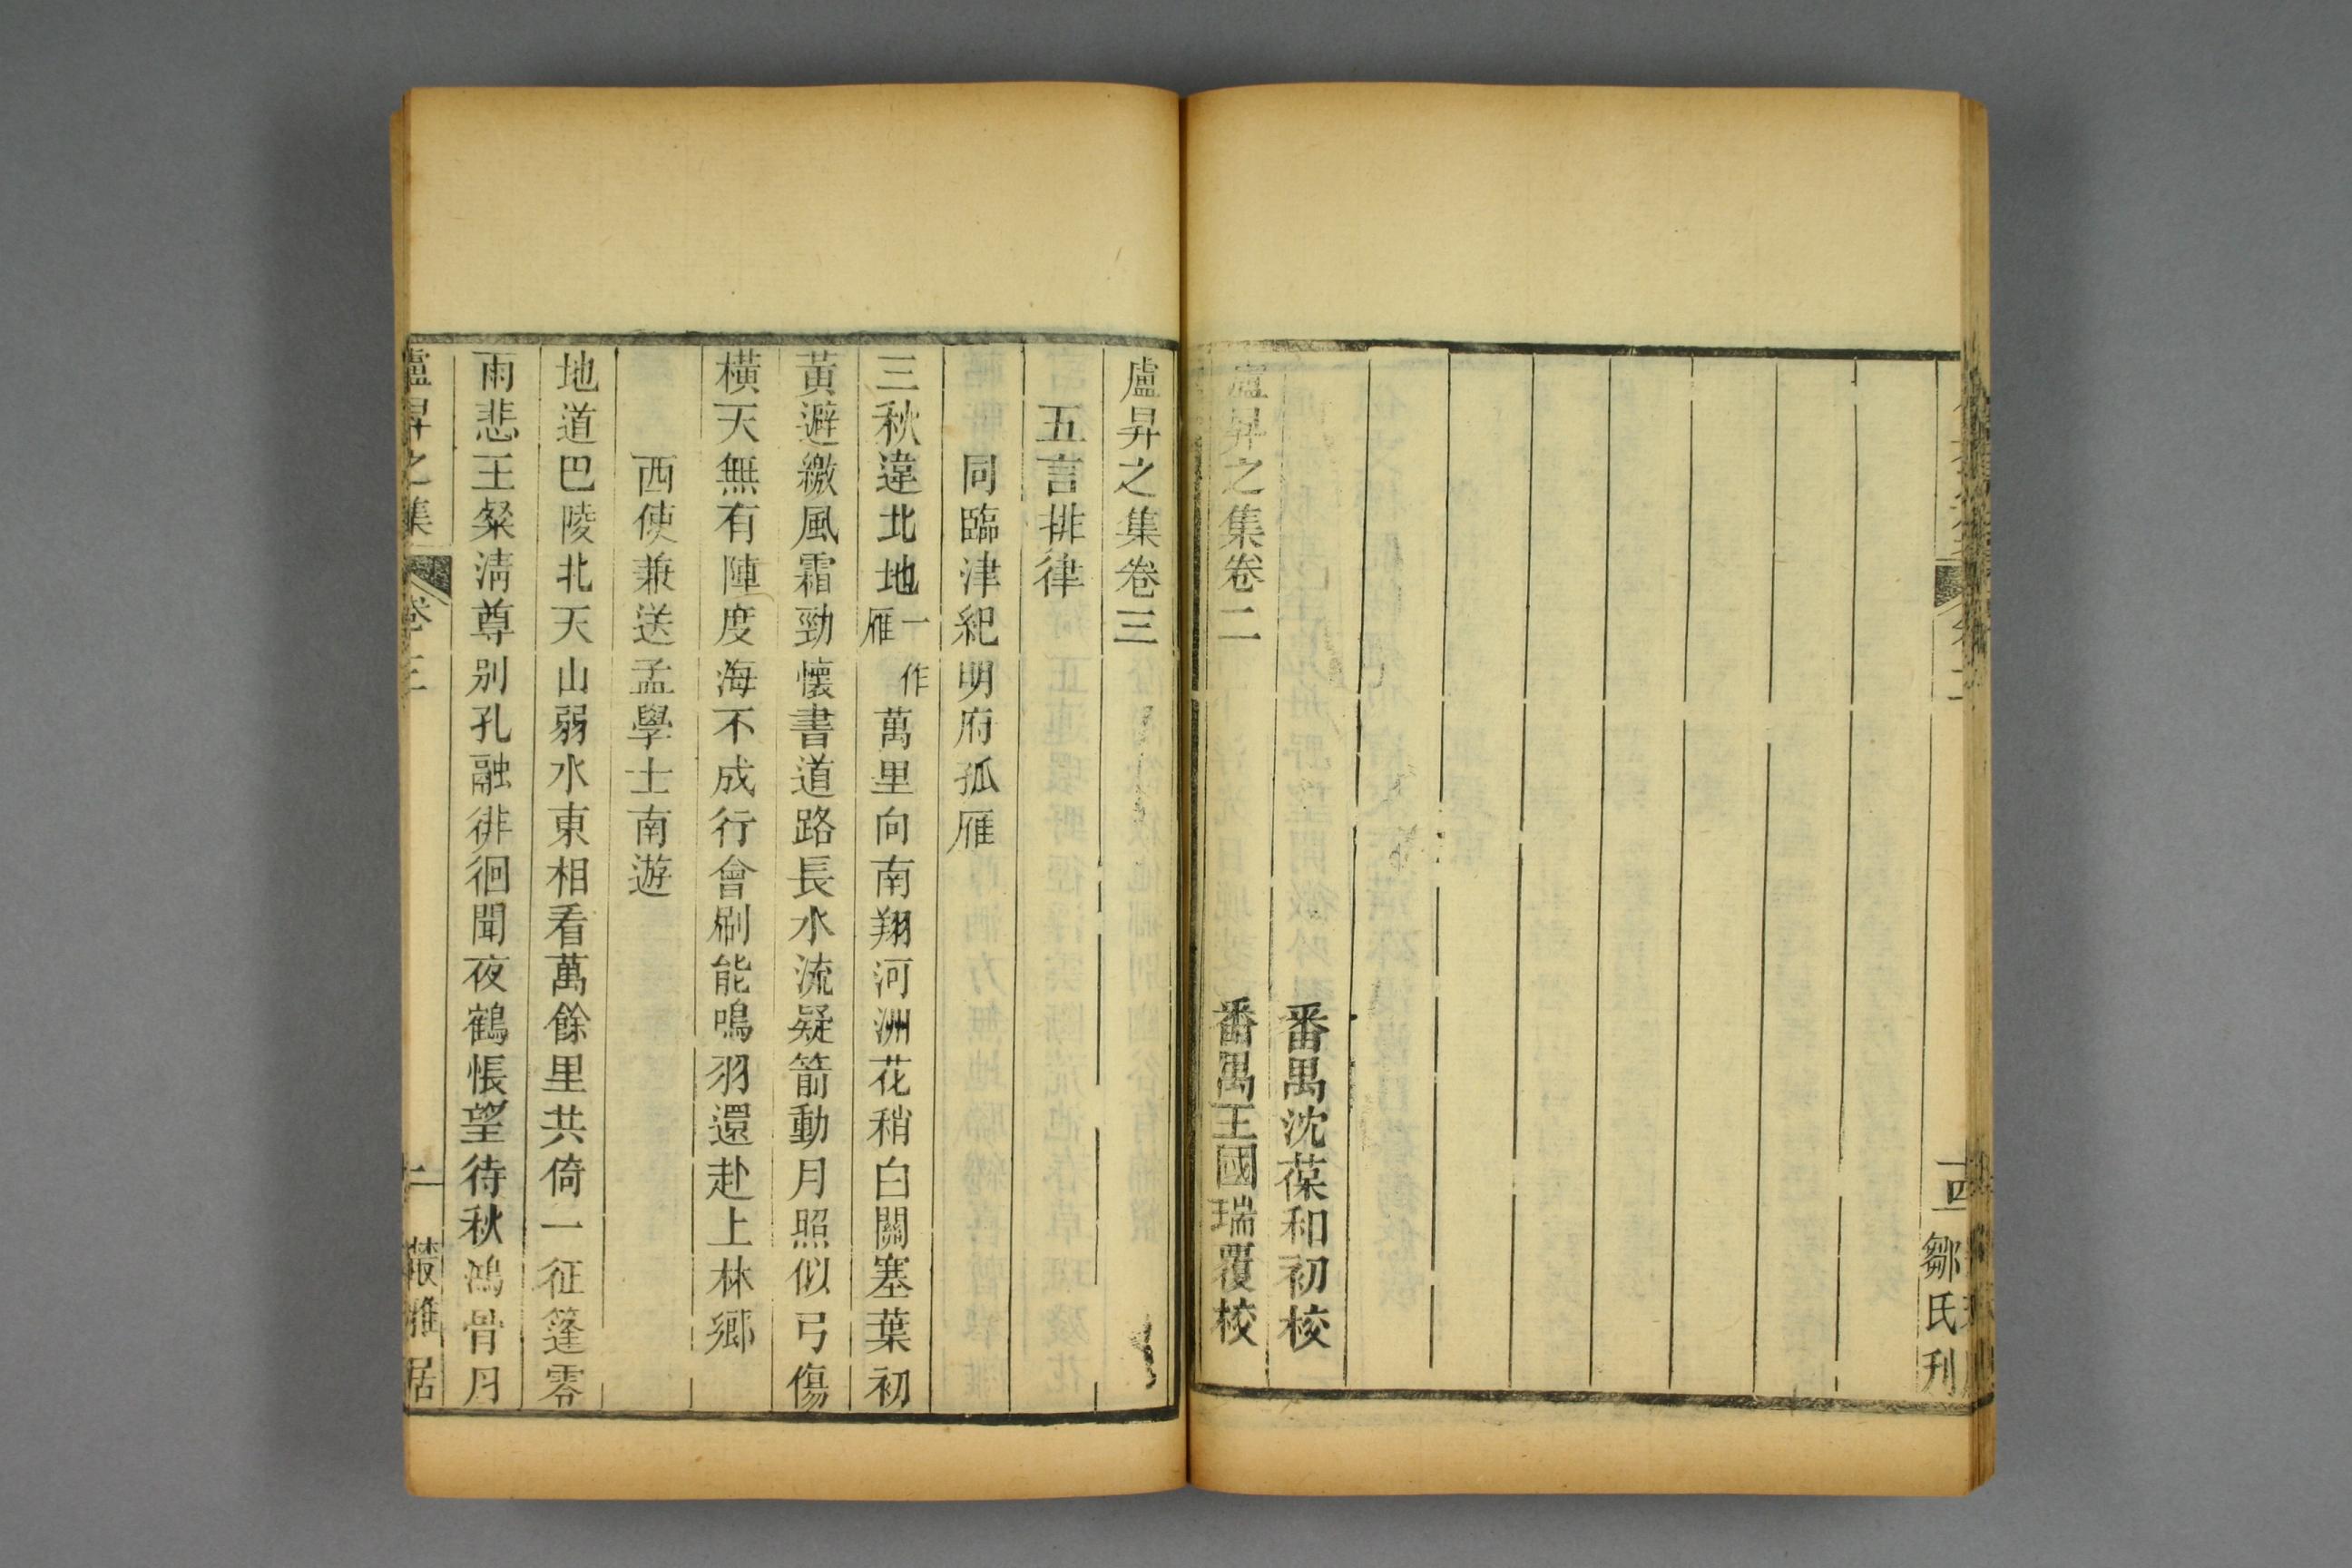 十四 鄒氏刊
番禺沈葆和初校
盧昇之集卷二 番禺王國瑞覆校
盧昇之集卷三
五言排律
同臨津紀明府孤雁
三秋違北地一作雁萬里向南翔河洲花稍白關塞葉初
黃避繳風霜勁懷書道路長水流疑箭動月照似弓傷
橫天無有陣度海不成行會刷能鳴羽還赴上林鄉
西使兼送孟學士南遊
地道巴陵北天山弱水東相看萬餘里共倚一征篷零
雨悲王粲淸尊别孔融徘徊聞夜鶴悵望待秋鴻骨月
盧昇之集 卷三 一 叢雅居